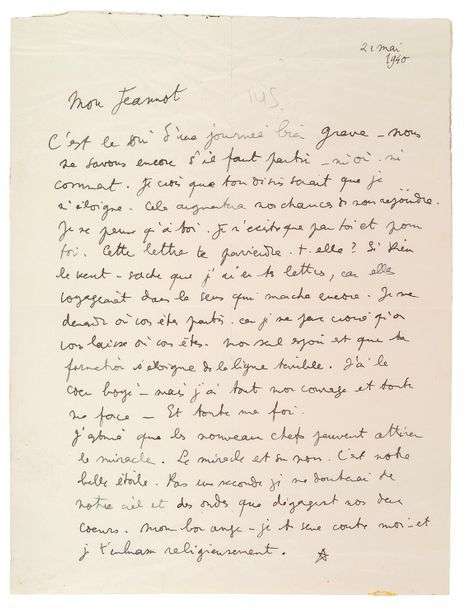 21 mai
1940
Mon Jeannot
C'est le soir d'une journée bien grave _ nous
ne savons encore s'il faut partir _ ni où . ni
comment . Je crois que ton désir serait que je
m'éloigne . Cela augmentera nos chances de nous rejoindre .
Je ne pense qu'à toi . Je n'existe que par toi et pour
toi . Cette lettre te parviendra . t . elle ? Si Dieu
le veut _ sache que j'ai eu tes lettres , car elles
voyageaient dans le sens qui marche encore . Je me
demande où vous êtes partis . car je ne peux croire qu'on
vous laisse où vous êtes . Mon seul espoir est que ta
formation s'éloigne de la ligne terrible . J'ai le
cœur broyé _ mais j'ai tout mon courage et toute
ma force _ Et toute ma foi .
que les nouveaux chefs peuvent attirer
le miracle . Le miracle est en nous . C'est notre
belle étoile . Pas une seconde je ne douterai de
notre ciel et des ondes que dégagent nos deux
cœurs . Mon bon ange _ je te serre contre moi _ et
je t'embrasse religieusement .